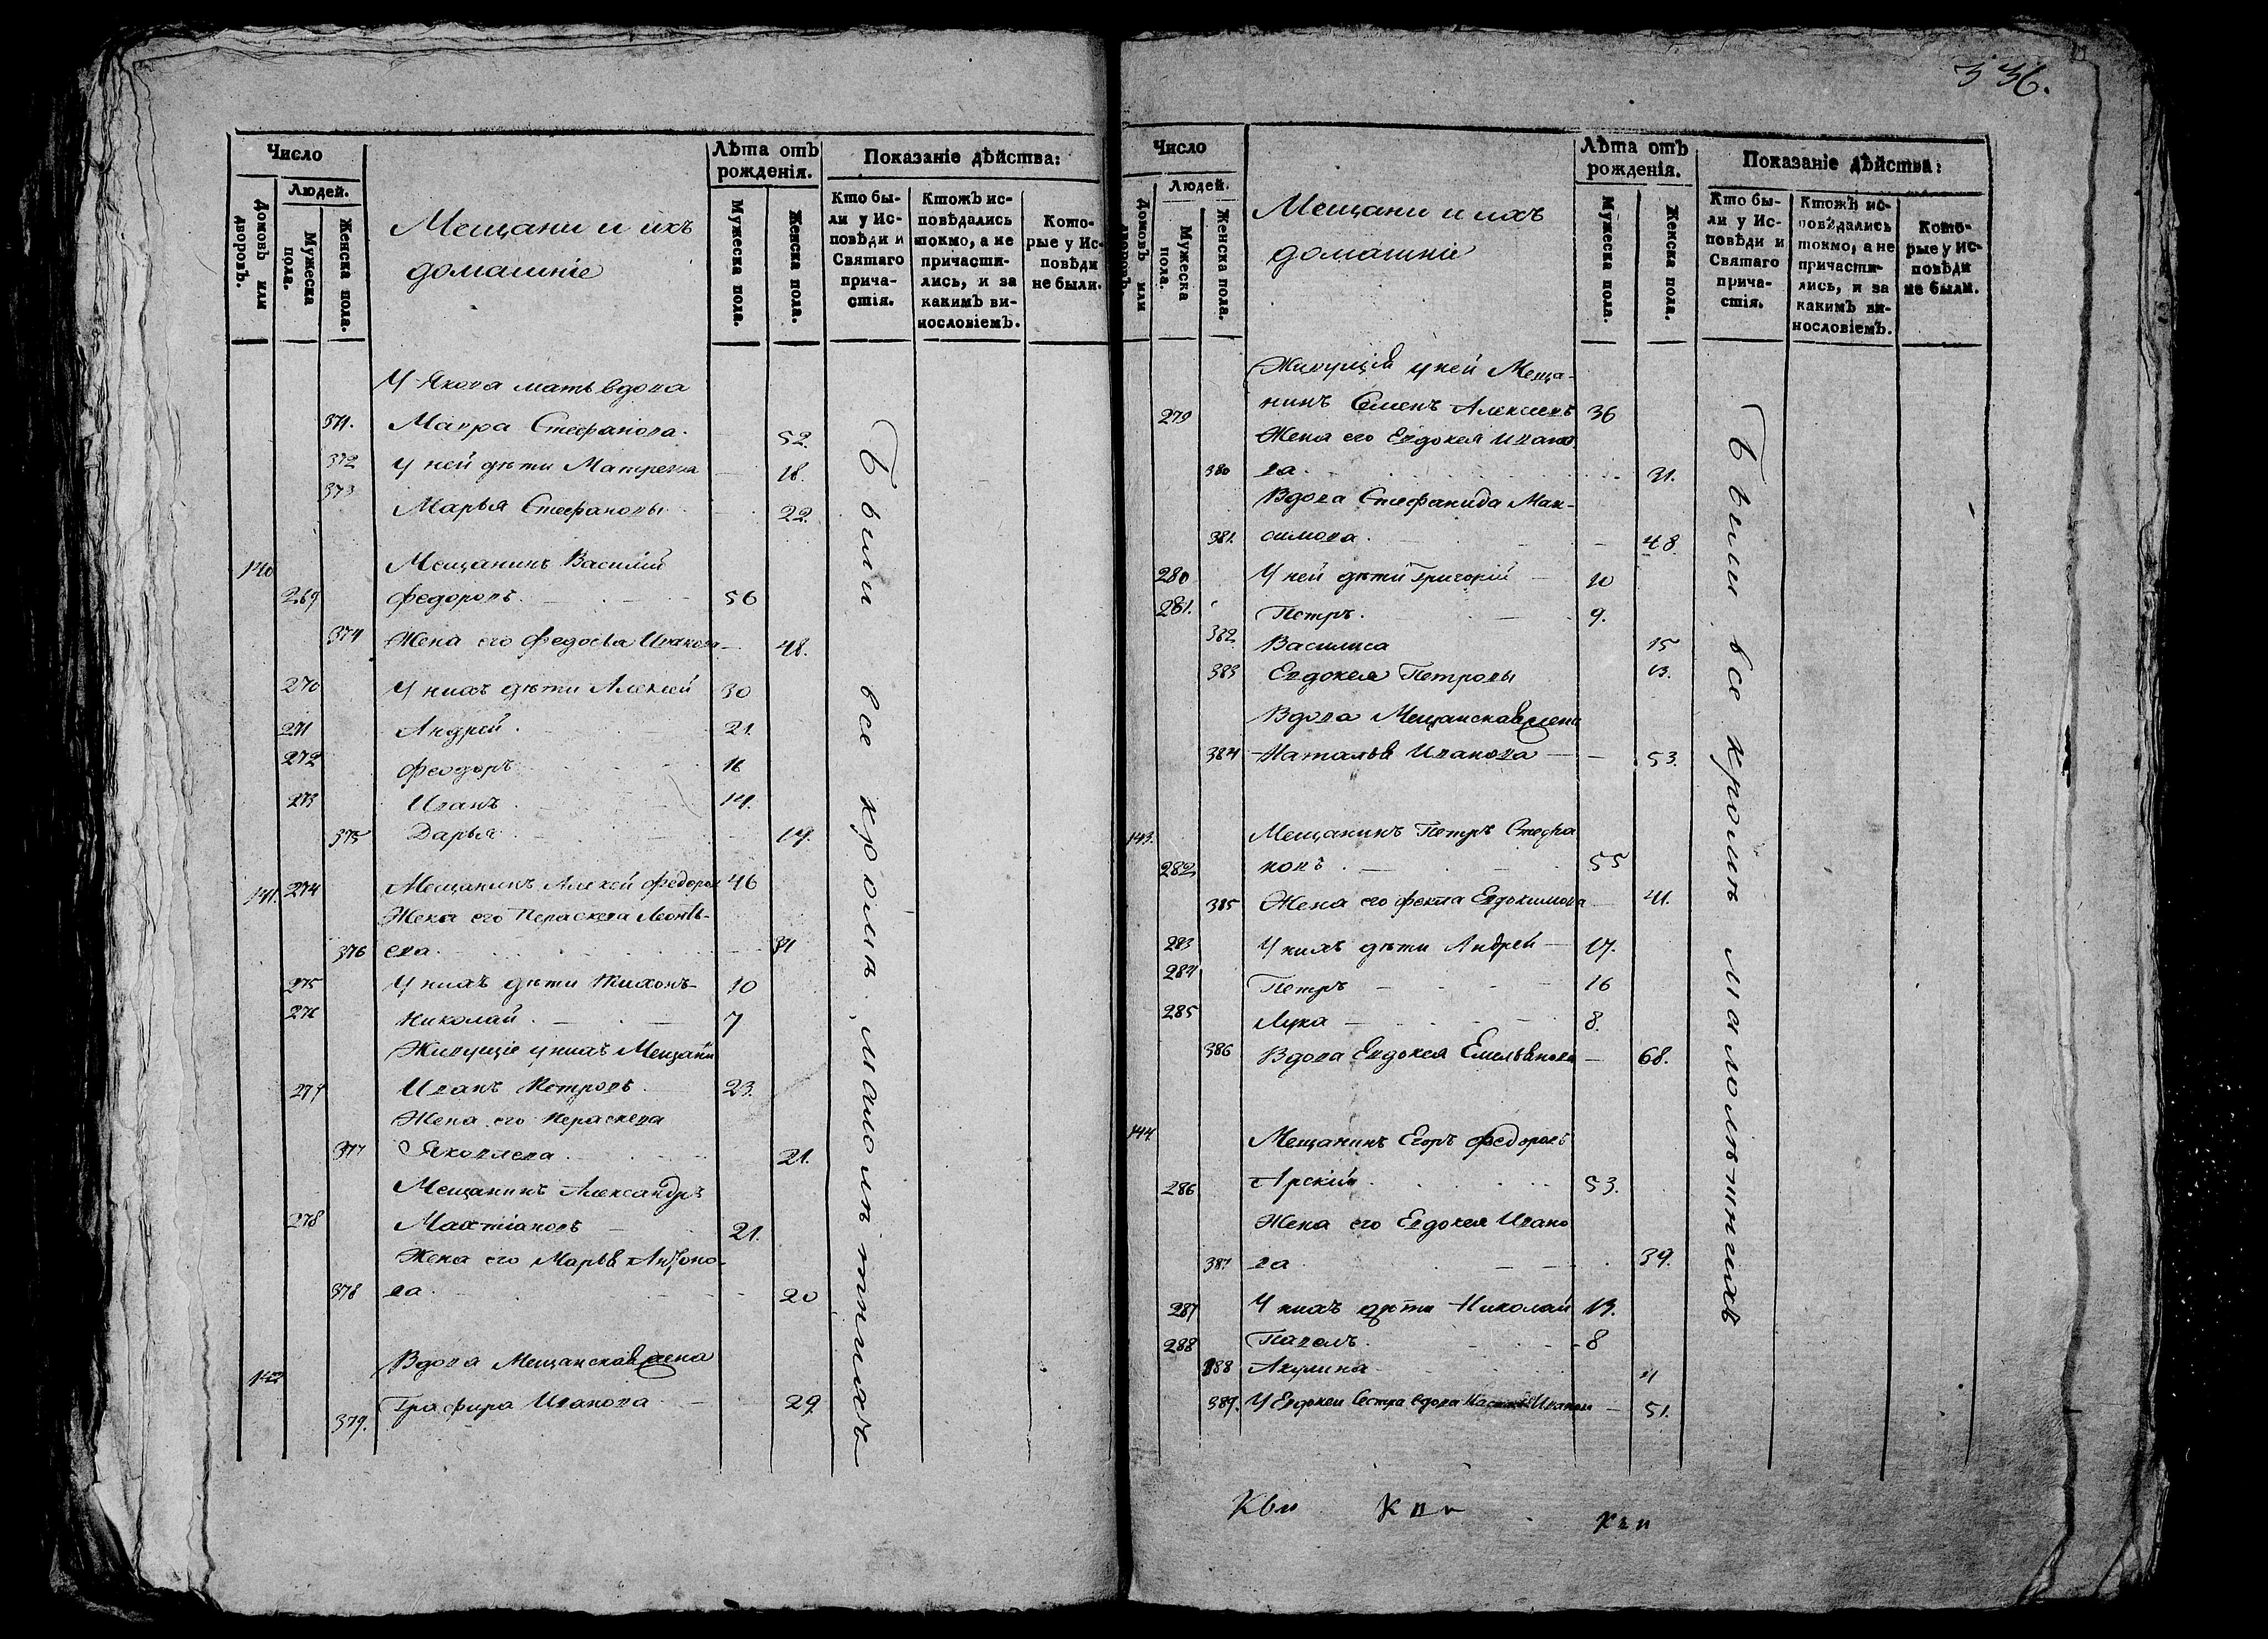 336.
Число
Людей.
Домовъ или дворовъ.
Мужеска пола.
Женска пола.
Мещани и ихъ
домашніе
Лѣта отъ
рожденія.
Мужеска пола.
Женска пола.
Показаніе дѣйства:
Кто бы-
ли у Ис-
повѣди и
Святаго
прича-
стія.
Ктожъ ис-
повѣдались
токмо, а не
причасти-
лись, и за
какимъ ви-
нословіемъ.
Кото-
рые у Ис-
повѣди
не были.
У Якова мать вдова
371. Мавра Стефанова. 52.
372 У ней дѣти Матрена 18.
373 Марья Стефановы 22.
140 Мещанинъ Василій
269 Федоровъ. 56
374 Жена его Федосья Иванова 48.
270 У нихъ дѣти Алексей 30
271 Андрей. 21
272 Феодоръ 16
273 Иванъ. 14.
375 Дарья. 19.
141. 274 Мещанинъ Алексей Федоров 46
Жена его Пераскева Леонтьь-
376 ева. 31
275 У нихъ дѣти Тихонъ 10
276 Николай. 7
Живущіе у нихъ Мещани
277 Иванъ Петровъ 23.
Жена его Пераскева
377 Яковлева. 21.
Мещанинъ Александръ
278 21.
Жена его Марья Антоно-
378 ва. 20
142 Вдова Мещанская жена
379. Графира Иванова 29
Были все кромѣ малолѣтнихъ
Число
Людей.
Домовъ или дворовъ.
Мужеска пола.
Женска пола.
Мещани и ихъ
домашніе
Лѣта отъ
рожденія.
Мужеска пола.
Женска пола.
Показаніе дѣйства:
Кто бы-
ли у Ис-
повѣди и
Святаго
прича-
стія.
Ктожъ ис-
повѣдались
токмо, а не
причасти-
лись, и за
какимъ ви-
нословіемъ.
Кото-
рые у Ис-
повѣди
не были.
Живущій у ней Меща-
279 нинъ Семенъ Алексеевъ 36
Жена его Евдокея Ивано
380 ва. 31.
Вдова Стефанида Мак-
381. симова. 48
280 У ней дѣти Григорій 10
281. Петръ. 9.
382 Василиса 15
383 Евдокея Петровы 13.
Вдова Мещанская жена
384 Наталья Иванова 53.
143. Мещанинъ Петръ Стефа
282 новъ. 55
385 Жена его Фекла Евдокимова 41.
283 У нихъ дѣти Андрей 17.
284 Петръ 16
285 Лука 8.
386 Вдова Евдокея Емельянова 68.
144 Мещанинъ Егоръ Федоровъ
286 Арскій 53.
Жена его Евдокея Ивано
387 ва 39.
287 У нихъ дѣти Николай 13.
288 Павелъ. 8
388 Акулина 4
389. У Евдокеи сестра вдова Иванов 51.
Были все кромѣ малолѣтнихъ